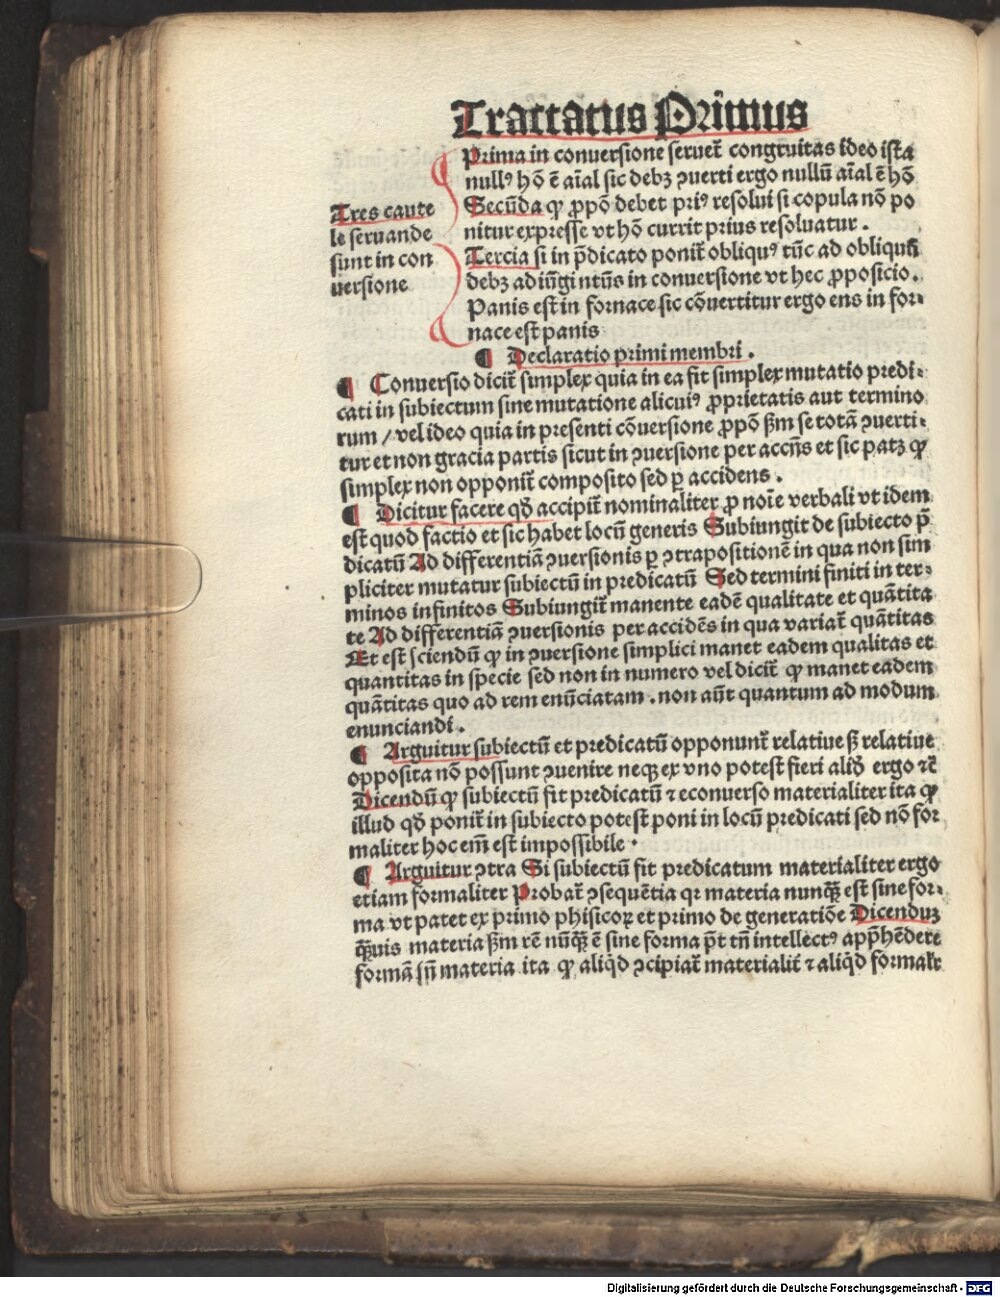 Tractatus Primus
Tres caute
le seruande
sunt in con
uersione
Prima in conuersione seruet̄ congruitas ideo ista
null⁹ hō ē aīal sic debꝫ ꝯuerti ergo nullū aīal ē hō
Secūda ꝙ ꝓpō debet pri⁹ resolui si copula nō po
nitur expresse vt hō currit prius resoluatur .
Tercia si in p̄dicato ponit̄ obliqu⁹ tūc ad obliquū
debꝫ adiūgi ntūs in conuersione vt hec ꝓposicio .
Panis est in fornace sic cōuertitur ergo ens in for⸗
nace est panis
¶ Declaratio primi membri .
¶ Conuersio dicit̄ simplex quia in ea fit simplex mutatio predi⸗
cati in subiectum sine mutatione alicui⁹ ꝓprietatis aut termino
rum / vel ideo quia in presenti cōuersione ꝓpō ẜm se totā ꝯuerti⸗
tur et non gracia partis sicut in ꝯuersione per accn̄s et sic patꝫ ꝙ
simplex non opponit̄ composito sed ꝑ accidens .
¶ Dicitur facere qd̄ accipit̄ nominaliter ꝓ noīe verbali vt idem
est quod factio et sic habet locū generis Subiungit de subiecto p̄
dicatū Ad differentiā ꝯuersionis ꝑ ꝯtrapositionē in qua non sim
pliciter mutatur subiectū in predicatū Sed termini finiti in ter⸗
minos infinitos Subiungit̄ manente eadē qualitate et quātita
te Ad differentiā ꝯuersionis per accidēs in qua variat̄ quātitas
Et est sciendū ꝙ in ꝯuersione simplici manet eadem qualitas et
quantitas in specie sed non in numero vel dicit̄ ꝙ manet eadem
quātitas quo ad rem enūciatam . non aūt quantum ad modum
enunciandi .
¶ Arguitur subiectū et predicatū opponunt̄ relatiue ẜ relatiue
opposita nō possunt ꝯuenire neqꝫ ex vno potest fieri aliđ ergo ⁊c̄
Dicendū ꝙ subiectū fit predicatū ⁊ econuerso materialiter ita ꝙ
illud qd̄ ponit̄ in subiecto potest poni in locū predicati sed nō for
maliter hoc em̄ est impossibile .
¶ Arguitur ꝯtra Si subiectū fit predicatum materialiter ergo
etiam formaliter Probat̄ ꝯsequētia qꝛ materia nunqꝫ̄ est sine for⸗
ma vt patet ex primo phisicoꝝ et primo de generatiōe Dicenduꝫ
qꝫ̄uis materia ẜm rē nūqꝫ̄ ē sine forma p̄t tn̄ intellect⁹ app̄hēdere
formā sn̄ materia ita ꝙ aliq̇d ꝯcipiat̄ materialit̄ ⁊ aliq̇d formalr̄
Digitalisierung gefördert durch die Deutsche Forschungsgemeinschaft - DFG